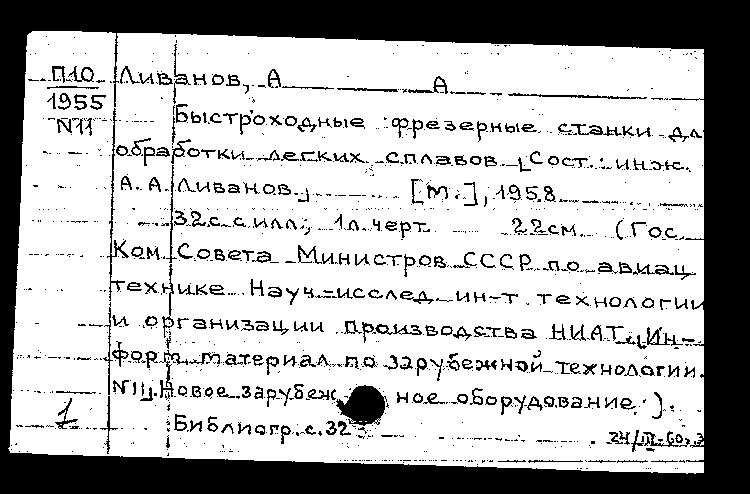 П10 Ливанов, А А
1955
N11
Быстроходные фрезерные станки дл
обработки легких сплавов [Сост.: инж.
А. А. Ливанов.] [М.], 1958
32с с илл.; 1л. черт. 22см (Гос
Ком Совета Министров СССР по авиац
технике Науч.-исслед ин-т технологии
и организации производства НИАТ. Ин-
форм материал по зарубежной технологии.
N11. Новое зарубеж ное оборудование.).
1 Библиогр. с. 32
24/III-60г.